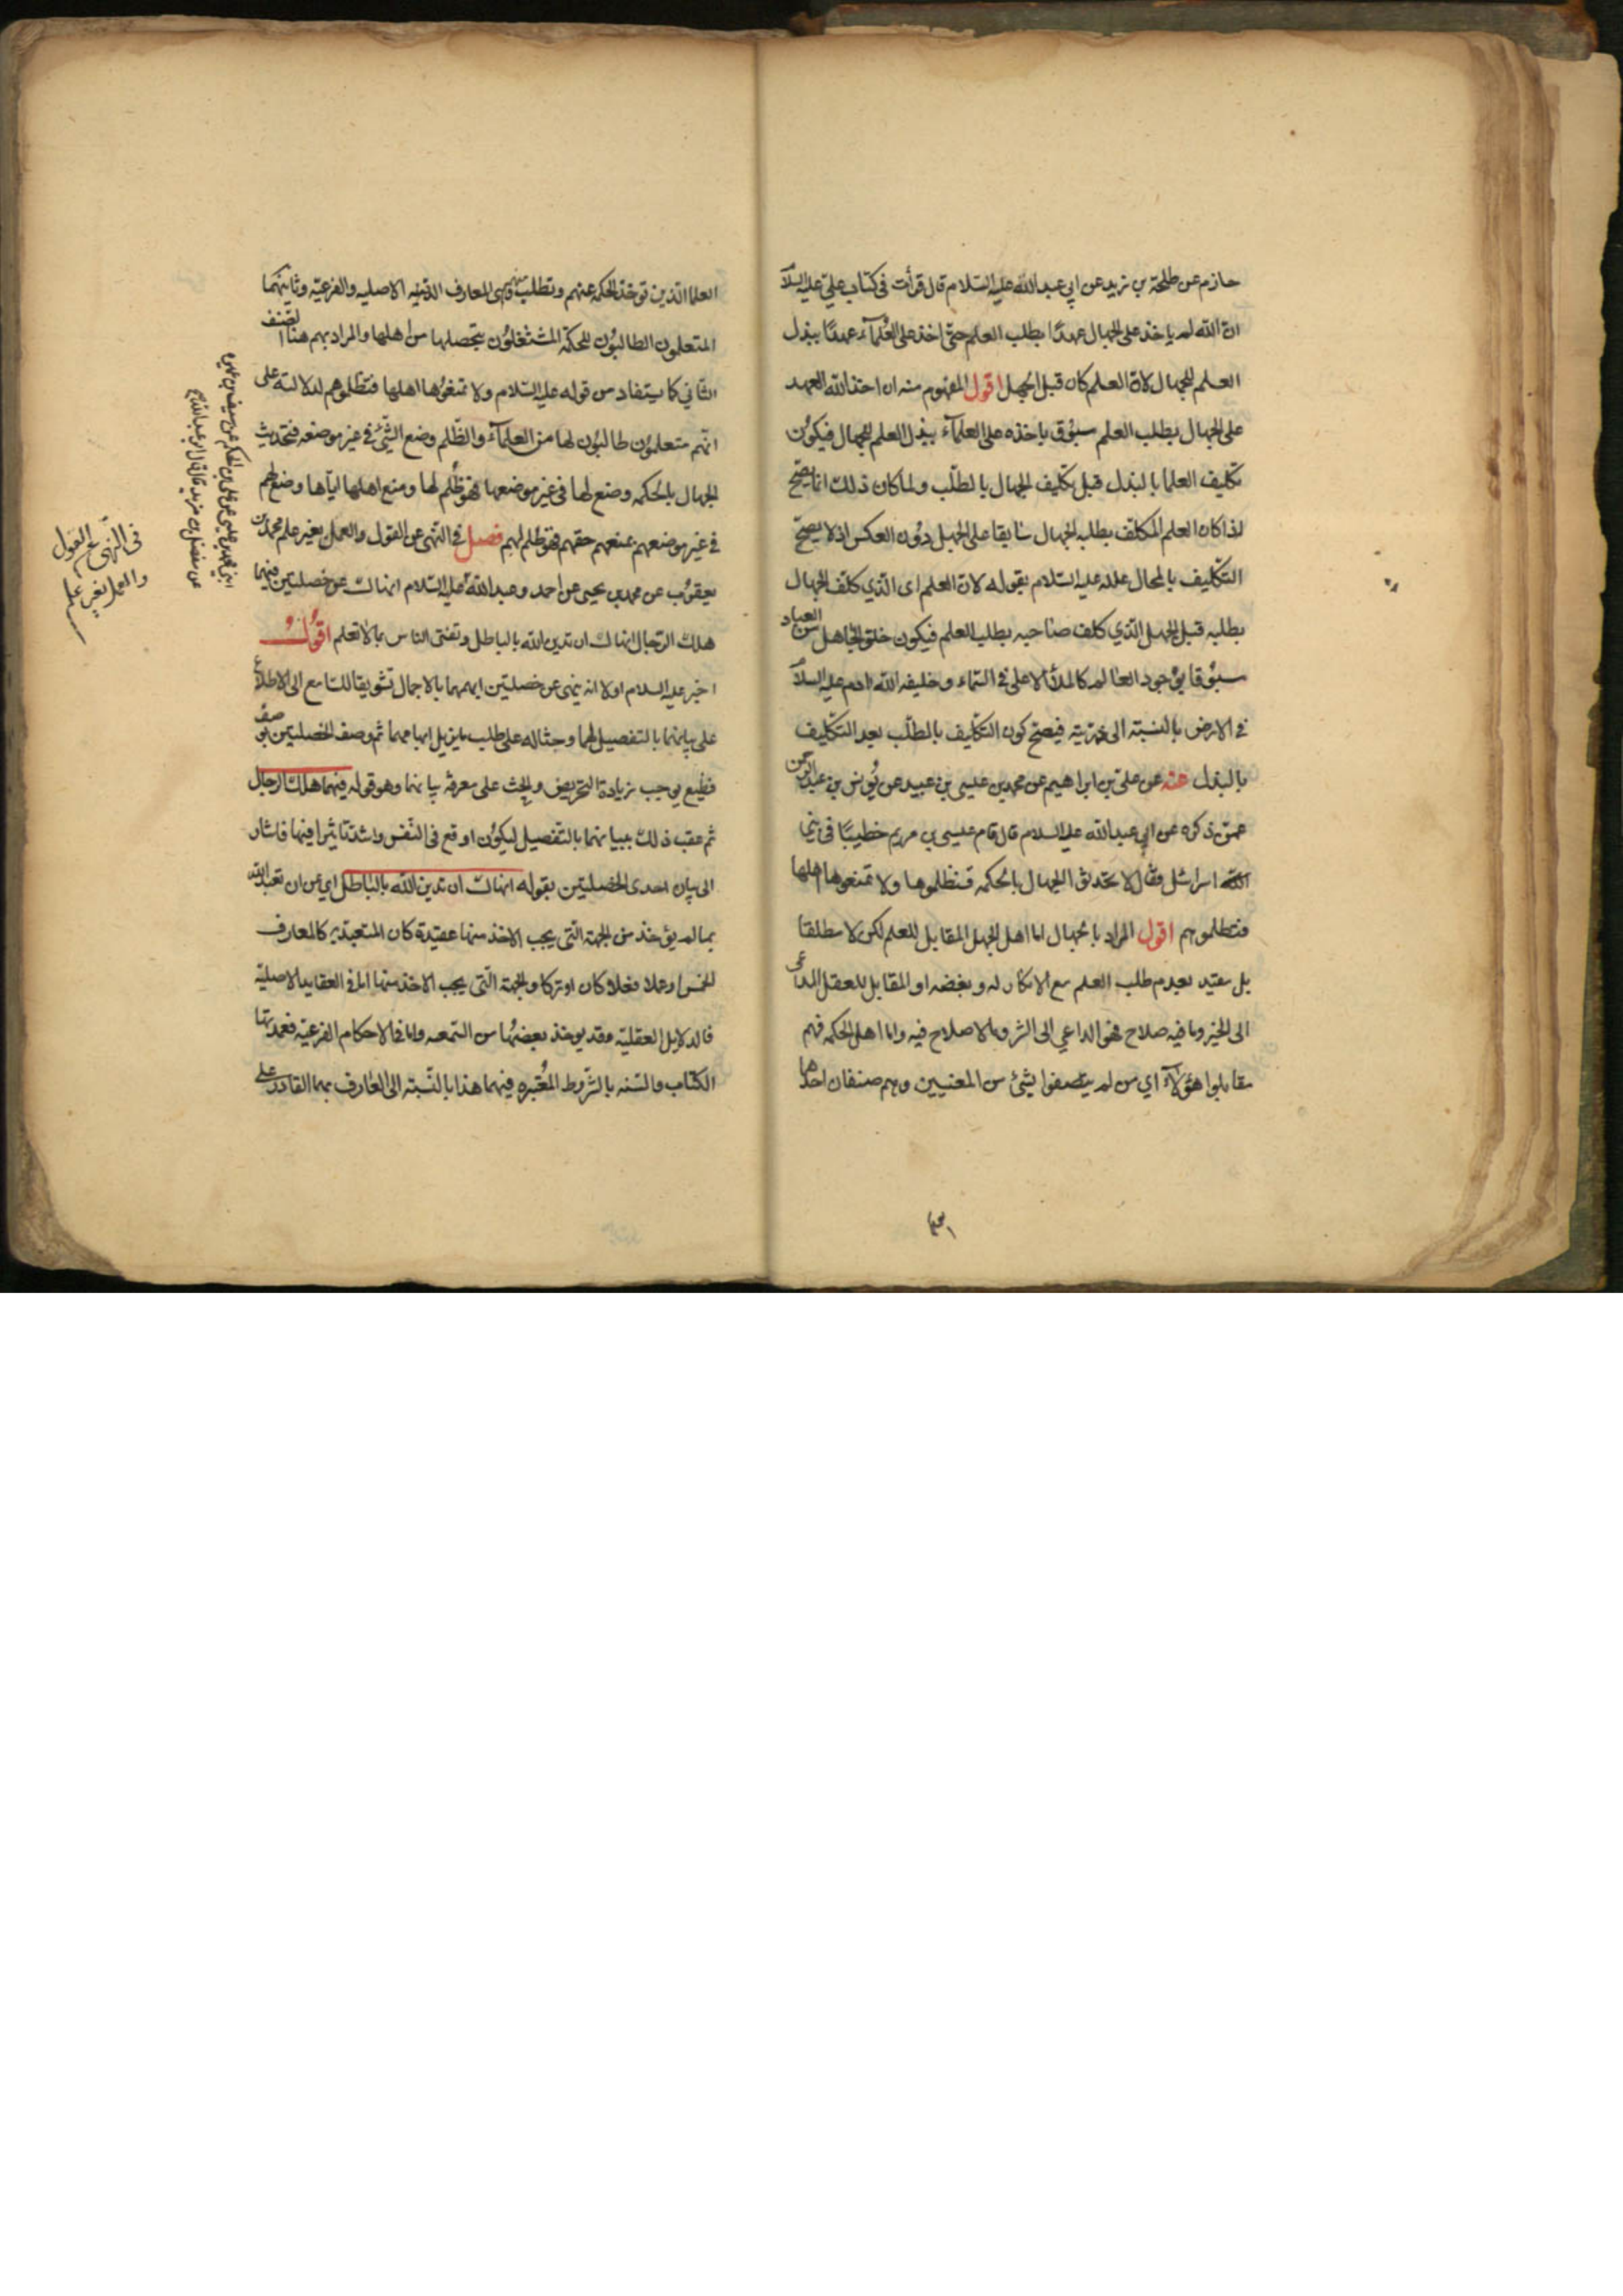 حازم عن طلحة بن زيد عن ابي عبد الله عليه السلام قال قرأت في كتاب علي عليه السلام
ان الله لم ياخذ على الجهال عهدا بطلب العلم حتى اخذ على العلماء عهدا ببذل
العلم للجهال لان العلم كان قبل الجهل اقول المفهوم منه ان اخذ الله العهد
على الجهال بطلب العلم سبوق باخذه على العلماء ببذل العلم للجهال فيكون
تكليف العلما بالبذل قبل تكليف الجهال بالطلب ولما كان ذلك انما يصح
اذا كان العلم المكلف بطلبه الجهال سابقا على الجهل دون العكس اذ لا يصح
التكليف بالمحال علله عليه السلام بقوله لان العلم اى الذي كلف الجهال
بطلبه قبل الجهل الذي كلف صاحبه بطلب العلم فيكون خلق الجاهل من العباد
مسبوقا بوجود العالم كالملأ الاعلى في السماء و خليفه الله ادم عليه السلام
في الارض بالنسبته الى ذريته فيصح كون التكليف بالطلب بعد التكليف
بالبذل عنه عن علي بن ابراهيم عن محمد بن عيسى بن عبيد عن يونس بن عبد الرحمن
عمن ذكره عن ابي عبد الله عليه السلام قال قام عيسى بن مريم خطيبا في بني
اسرائيل فقال لا تحدثوا الجهال بالحكمه فتظلموها ولا تمنعوها اهلها
فتظلموهم اقول المراد بالجهال اما اهل الجهل المقابل للعلم لكن لا مطلقا
بل مقيد بعدم طلب العلم مع الانكار له و بغضه او المقابل للعقل الداعى
الى الخير وما فيه صلاح فهو الداعي الى الشر وما لا صلاح فيه واما اهل الحكمه فهم
مقابلوا هؤلاء اي من لم يتصفوا بشئ من المعنيين وهم صنفان احدهما
العلما الذين توخذ الحكمه عنهم وتطلب منهم وهى المعارف الدينيه الاصليه والفرعيه وثانيهما
المتعلمون الطالبون للحكمة المشتغلون بتحصلها من اهلها والمراد بهم هنا الصنف
الثاني كما يستفاد من قوله عليه السلام ولا تمنعوها اهلها فتظلموهم لدلالته على
انهم متعلمون طالبون لها من العلماء والظلم وضع الشئ في غير موضعه فتحديث
الجهال بالحكمه وضع لها في غير موضعها فهو ظلم لها ومنع اهلها اياها وضع لهم
في غير موضعهم بمنعهم حقهم فهو ظلم لهم فصل في النهى عن القول والعمل بغير علم محمد بن
يعقوب عن محمد بن يحيى عن احمد وعبد الله عليه السلام انهاك عن خصلتين فيهما
هلك الرجال انهاك ان تدين الله بالباطل وتفتى الناس بما لا تعلم اقول
اخبر عليه السلام اولا انه ينهى عن خصلتين ابهمهما بالاجمال تشويقا للسامع الى الاطلاع
على بيانهما بالتفصيل لهما وحثا له على طلب ما يزيل ابهامهما ثم وصف الخصلتين بوصف
فظيع يوجب زيادة التحريض والحث على معرفة بيانهما وهو قوله فيهما هلك الرجال
ثم عقب ذلك ببيانهما بالتفصيل ليكون اوقع في النفس واشد تاثيرا فيها فاشار
الى بيان احدى الخصلتين بقوله انهاك ان تدين الله بالباطل اي عن ان تعبد الله
بما لم يؤخذ من الجهة التي يجب الاخذ منها عقيدة كان المتعبد به كالمعارف
الخمس او عملا فعلا كان او تركا والجهة التي يجب الاخذ منها اما في العقايد الاصلية
فالدلايل العقلية وقد يوخذ بعضها من السمع واما في الاحكام الفرعيه فعمدتها
الكتاب والسنه بالشروط المعتبره فيهما هذا بالنسبته الى العارف بهما القادر على
ابني محمد بن عيسى عن علي بن الحكم عن سيف بن عميرة
عن مفضل بن مزيد قال قال ابو عبد الله
في النهي عن القول
والعمل بغير علم